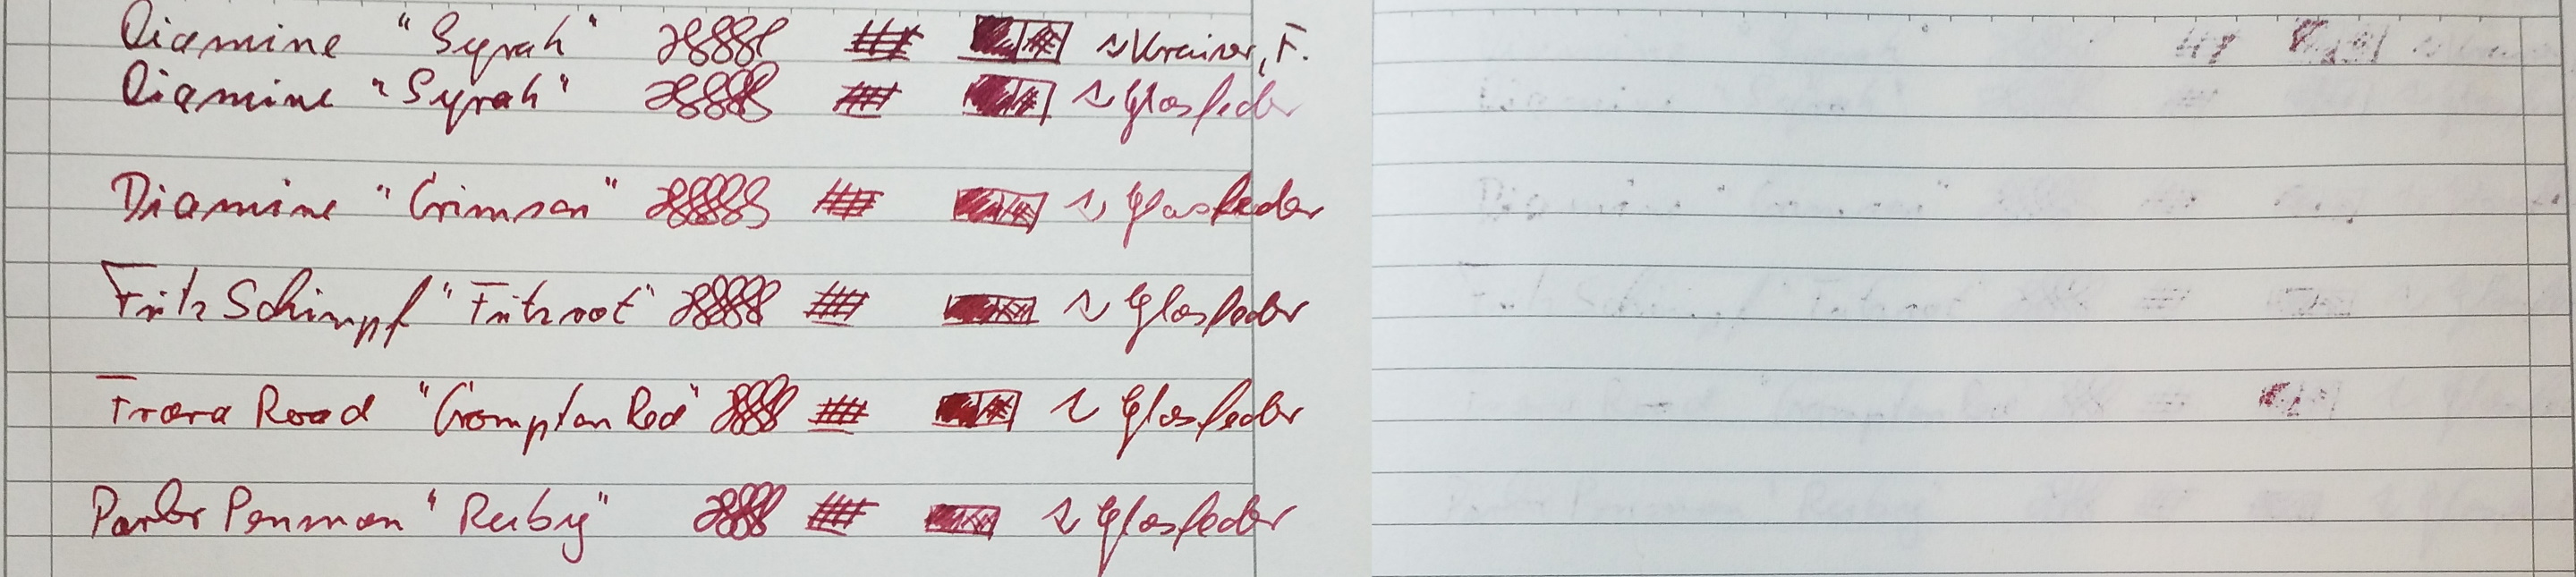 Diamine "Syrah" ~ Kraiser, F.
Diamine "Syrah" ~ Glasfeder
Diamine "Crimson" ~ Glasfeder
Fritz Schimpf "Fritzrot" ~ Glasfeder
Franz Road "Crompton Red" ~ Glasfeder
Parker Penman "Ruby" ~ Glasfeder